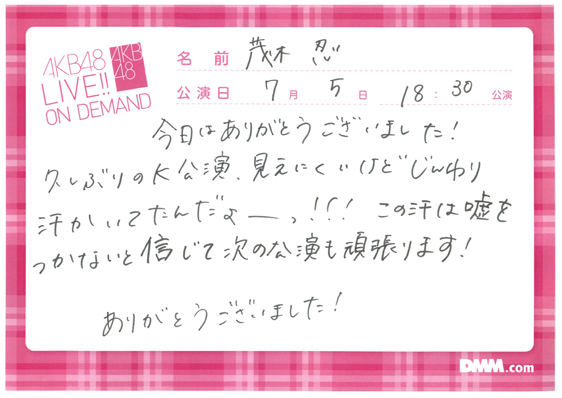 AKB48
LIVE!!
ON DEMAND
AKB
48
名前 茂木 忍
公演日 7月 5日 18:30 公演
今日はありがとうございました!
久しぶりのK公演、見えにくいけどじんわり
汗かいてたんだよーっ!!! この汗は嘘を
つかないと信じて次の公演も頑張ります!
ありがとうございました!
DMM.com